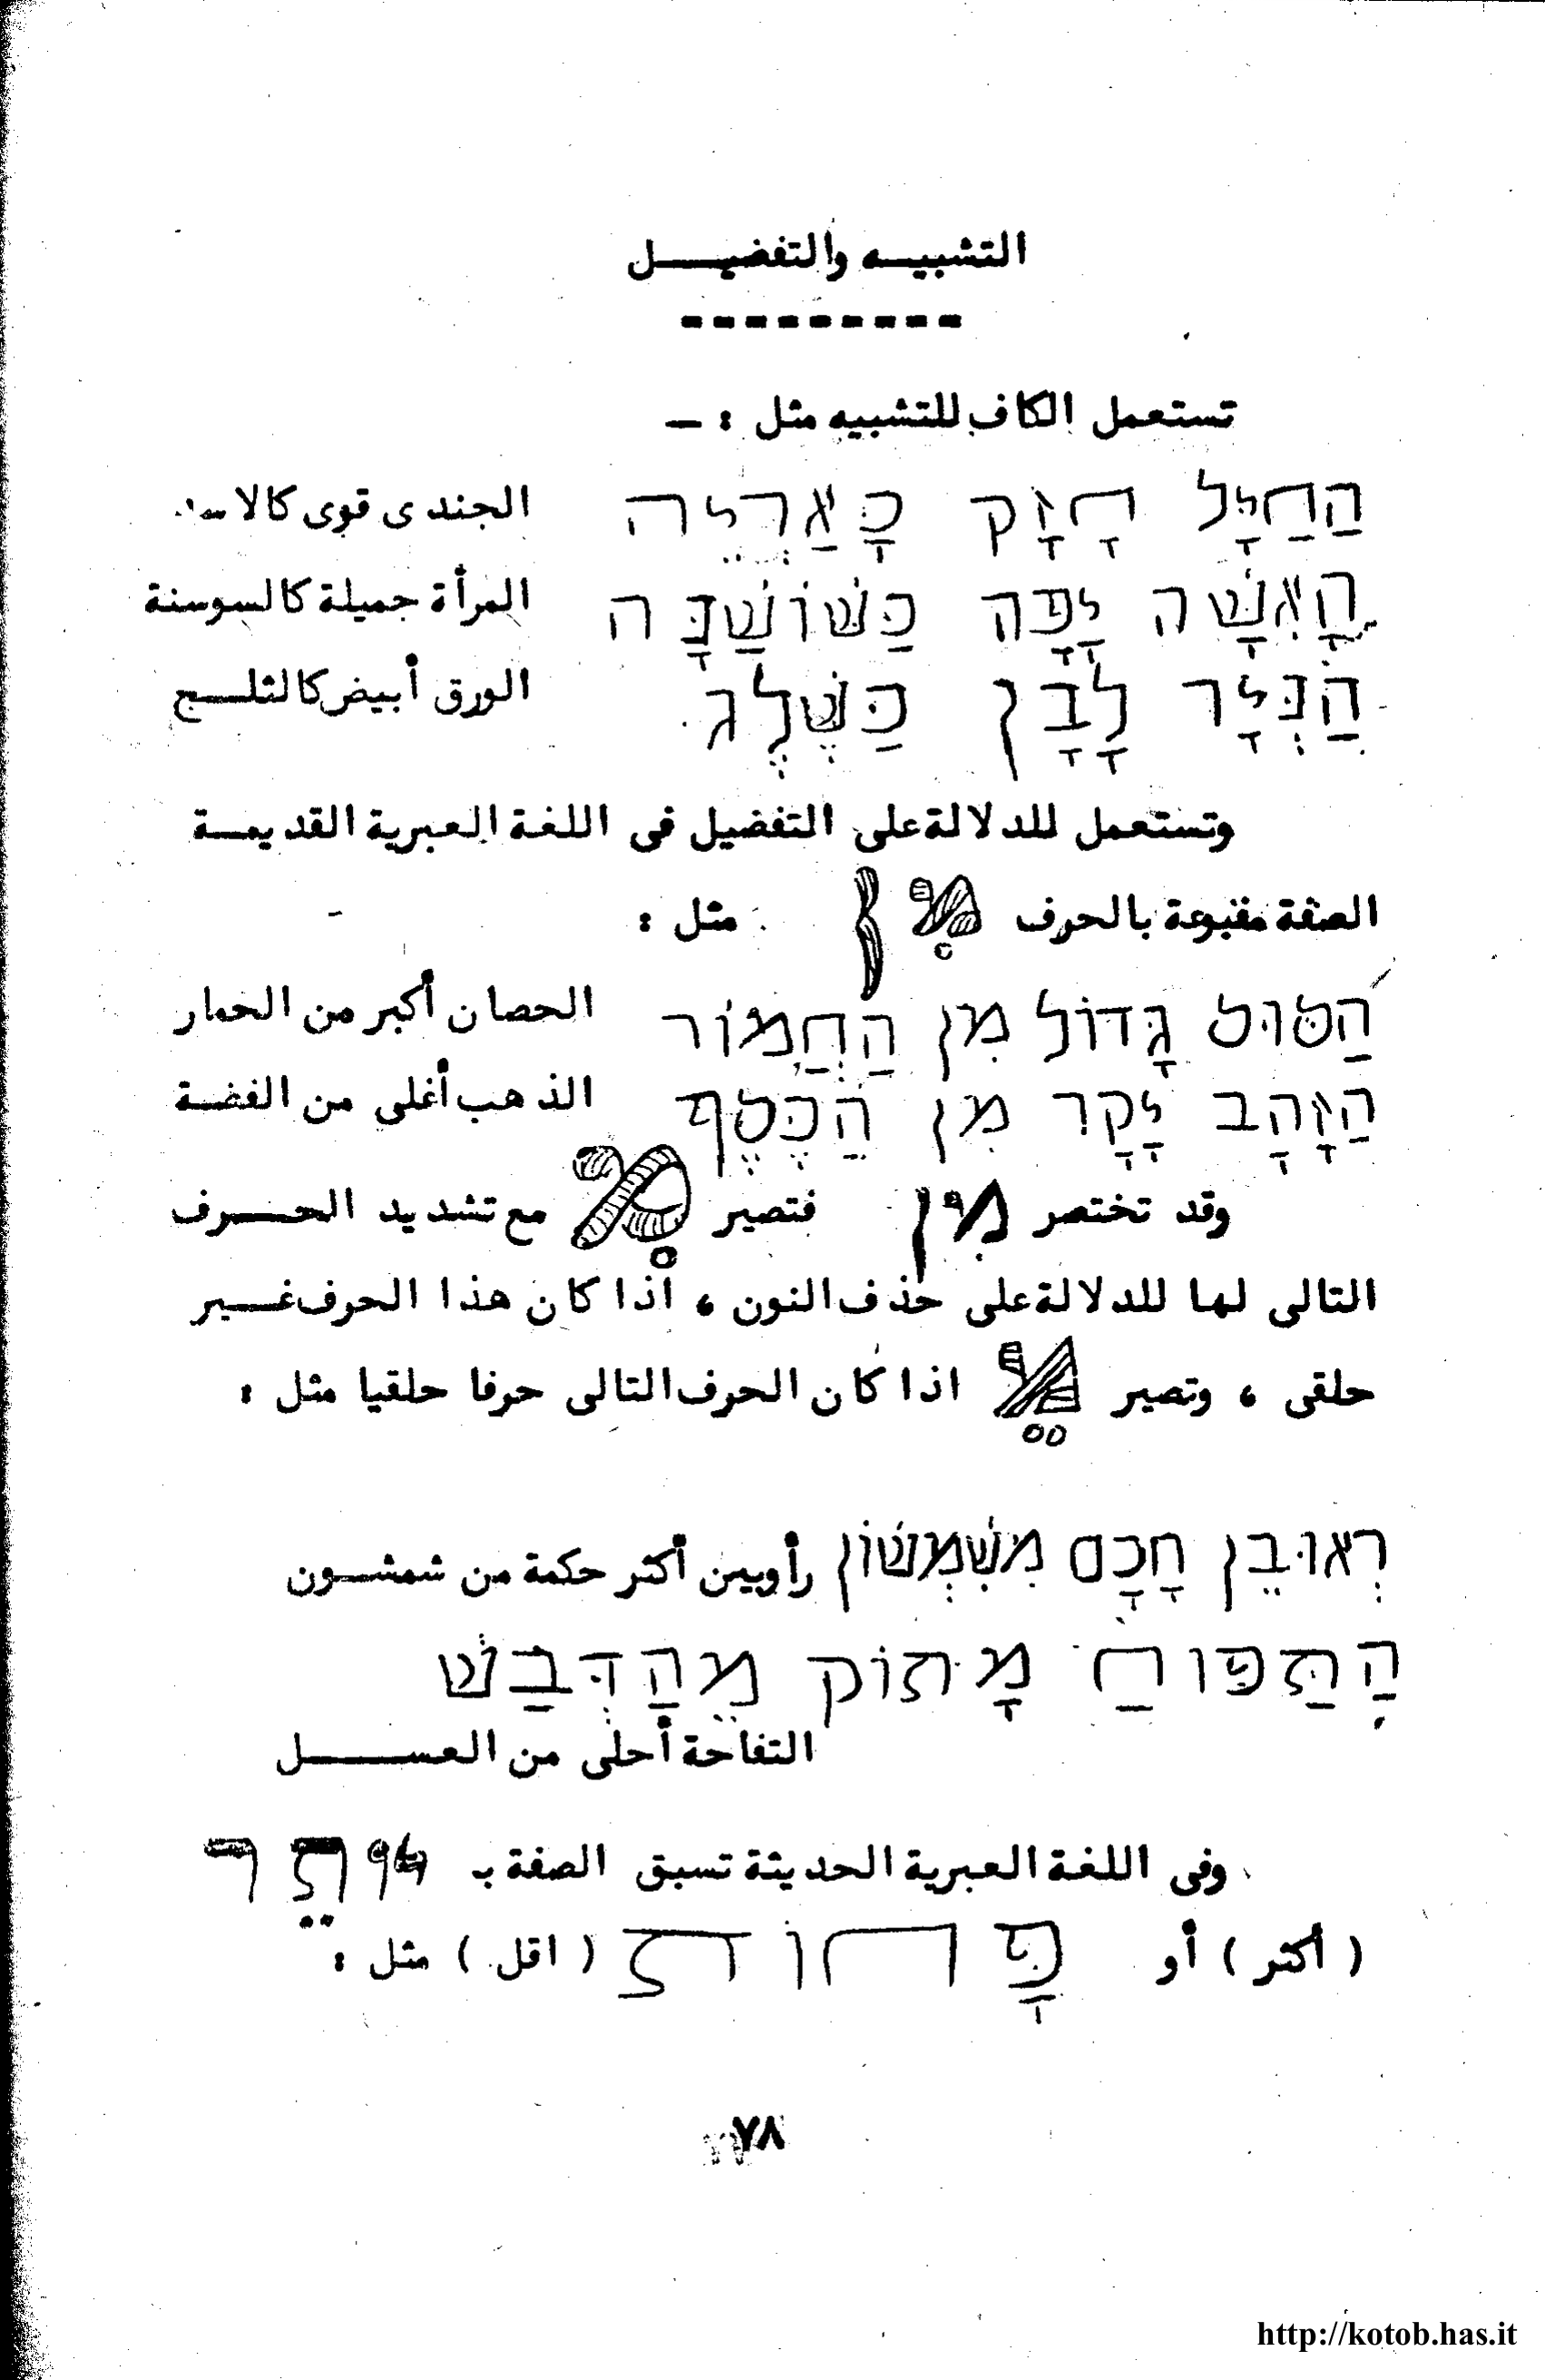 التشبيه والتفضيل
تستعمل الكاف للتشبيه مثل : ـ
הַחַיָּל חָזָק כָּאַרְיֵה الجندى قوى كالاسد
הָאִשָּׁה יָפָה כַּשּׁוֹשַׁנָּה المرأة جميلة كالسوسنة
הַנְּיָר לָבָן כַּשֶּׁלֶג الورق أبيض كالثلج
وتستعمل للدلالة على التفضيل فى اللغة العبرية القديمة
الصفة متبوعة بالحرف מִן مثل :
הַסּוּס גָּדוֹל מִן הַחֲמוֹר الحصان أكبر من الحمار
הַזָּהָב יָקָר מִן הַכֶּסֶף الذهب أغلى من الفضة
وقد تختصر מִן فتصير מִ مع تشديد الحرف
التالى لها للدلالة على حذف النون ، اذا كان هذا الحرف غير
حلقى ، وتصير מֵ اذا كان الحرف التالى حرفا حلقيا مثل :
רְאוּבֵן חָכָם מִשִּׁמְשׁוֹן رأوبين أكثر حكمة من شمشون
הַתַּפּוּחַ מָתוֹק מֵהַדְּבַשׁ
التفاحة أحلى من العسل
وفى اللغة العبرية الحديثة تسبق الصفة بـ יוֹתֵר
( أكثر ) أو פָּחוֹת ( اقل ) مثل :
٧٨
http://kotob.has.it